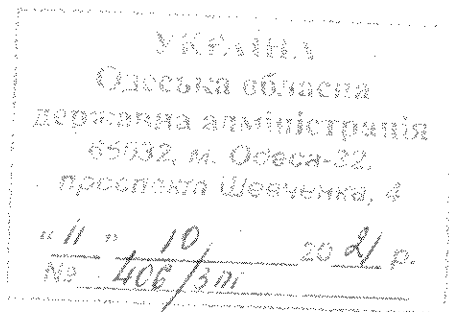 УКРАЇНА
Одеська обласна
державна адміністрація
65032, м. Одеса-32,
проспект Шевченка, 4
"11" 10 2021 р.
№ 406/